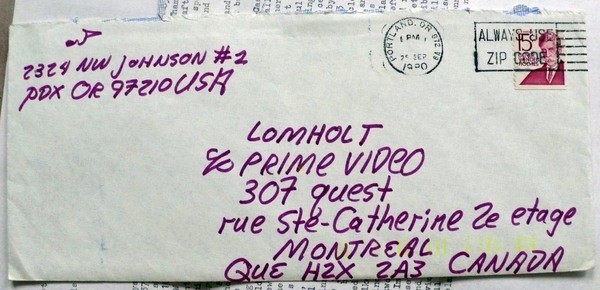 2324 NW JOHNSON #2
PDX OR 97210 USA
PORTLAND, OR 972
PM
25 SEP
1980
ALWAYS USE
ZIP CODE
15c
LOMHOLT
c/o PRIME VIDEO
307 quest
rue Ste-Catherine 2e etage
MONTREAL
QUE H2X 2A3 CANADA